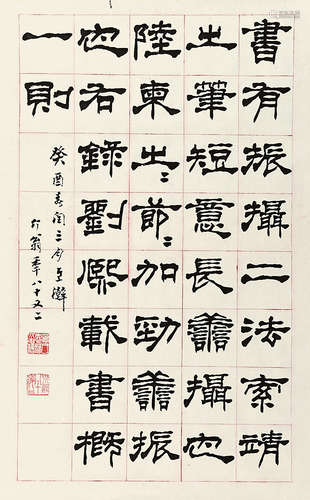 書有振攝二法索靖
之筆短意長譱攝也
陸柬之〻節〻加勁譱振
也右錄劉熙載書概
一則
癸酉春闰三月
翁年八十又二